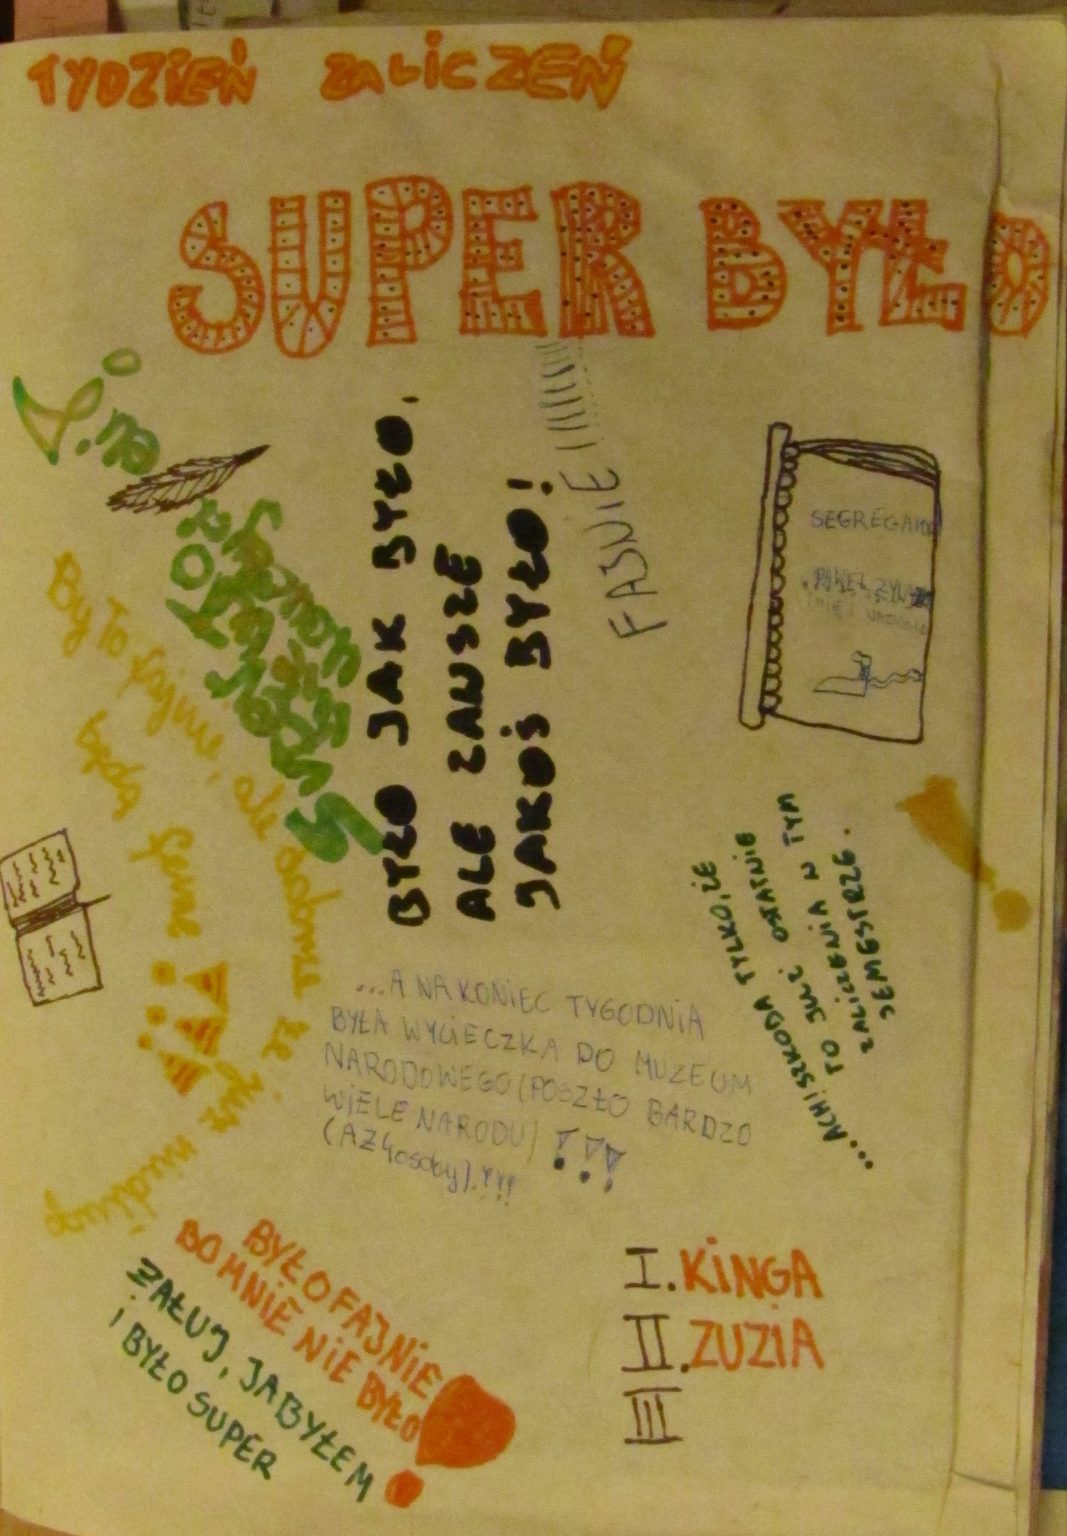 TYDZIEŃ ZALICZEŃ
SUPER BYŁO
BYŁO JAK BYŁO,
ALE ZAWSZE
JAKOŚ BYŁO!
FAJNIE!!!!!!!!
By To fajnie, ale dobrze że już
będą ferie !!!
...ACH! SZKODA TYLKO, ŻE
TO JUŻ OSTATNIE
ZALICZENIA W TYM
SEMESTRZE.
...A NA KONIEC TYGODNIA
BYŁA WYCIECZKA DO MUZEUM
NARODOWEGO (POSZŁO BARDZO
WIELE NARODU) !!!
(AŻ 4 osoby).!!!
BYŁO FAJNIE
BO MNIE NIE BYŁO!
ŻAŁUJ, JA BYŁEM
I BYŁO SUPER
I. KINGA
II. ZUZIA
III